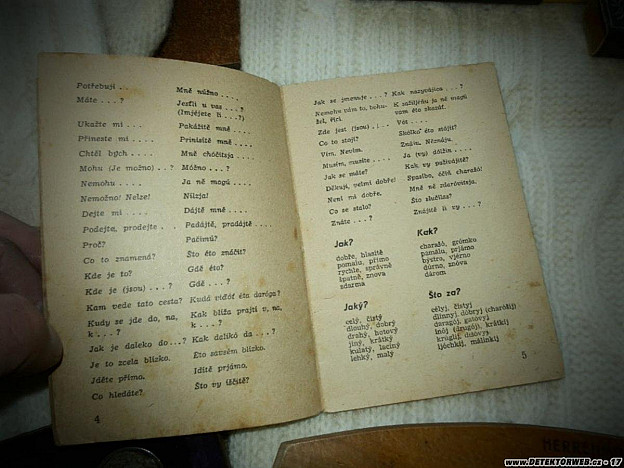 Potřebuji . . Mně nůžno . . . .
Máte . . . ? Jesťli u vas . . . ?
(Imjéjete li . . . ?)
Ukažte mi . . . Pakážitě mně . . . .
Přineste mi . . . . Prinisitě mně . . . .
Chtěl bych . . . . Mně chóčitsja . . . .
Mohu (Je možno) . . ? Móžno . . . ?
Nemohu . . . . Ja ně magů . . . .
Nemožno! Nelze! Nilzja!
Dejte mi . . . . Dájtě mně . . . .
Podejta, prodejte . . Padájtě, pradájtě . . . .
Proč? Pačimú?
Co to znamená? Što éto znáčit?
Kde je to? Gdě éto?
Kde je (jsou) . . . ? Gdě . . . ?
Kam vede tato cesta? Kudá viďót éta daróga?
Kudy se jde do, na, Kak blíža prajtí v, na,
k . . . ? k . . . ?
Jak je daleko do . . . ? Kak dalikó da . . . ?
Je to zcela blízko. Eto savsém blízko.
Jděte přímo. Idítě prjámo.
Co hledáte? Što vy íščitě?
4
Jak se jmenuje . . . ? Kak nazyvájitsa . . . ?
Nemohu vám to, bohu- K sažiljéňju ja ně magú
žel, říci. vam éto skazáť.
Zde jest (jsou) . . . Vót . . . .
Co to stojí? Skóľko éto stójit?
Vím. Nevím. Znáju. Něznáju.
Musím, musíte . . . . Ja (vy) dólžin . . . .
Jak se máte? Kak vy paživájitě?
Děkuji, velmi dobře! Spasíbo, óčiň charašó!
Není mi dobře. Mně ně zdaróvitsja.
Co se stalo? Što slučílas?
Znáte . . . ? Znájitě li vy . . . ?
Jak? Kak?
dobře, hlasitě charašó, grómko
pomalu, přímo pamálu, prjámo
rychle, správně býstro, vjérno
špatně, znova dúrno, znóva
zdarma dárom
Jaký? Što za?
celý, čistý célyj, čístyj
dlouhý, dobrý dlínnyj dóbryj (charóšij)
drahý, hotový daragój, gatóvyj
jiný, krátký inój (drugój), krátkij
kulatý, laciný krúglij, ďišóvyj
lehký, malý ljóchkij, málinkij
5
www.DETEKTORWEB.cz - 17